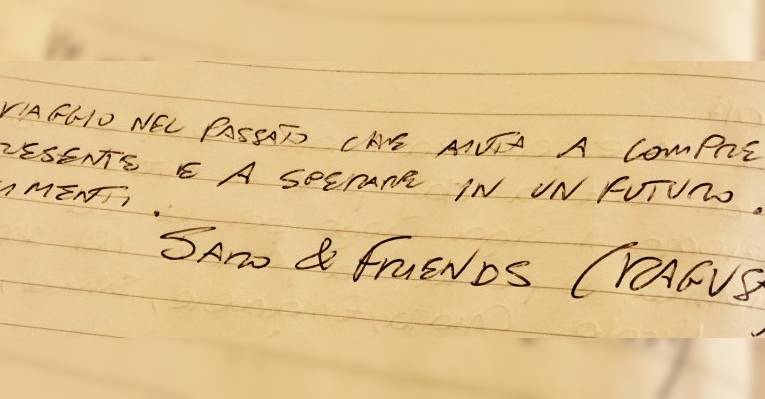 VIAGGIO NEL PASSATO CHE AIUTA A COMPRE
RESENTE E A SPERARE IN UN FUTURO.
IMENTI.
SARO & FRIENDS (RAGUSA